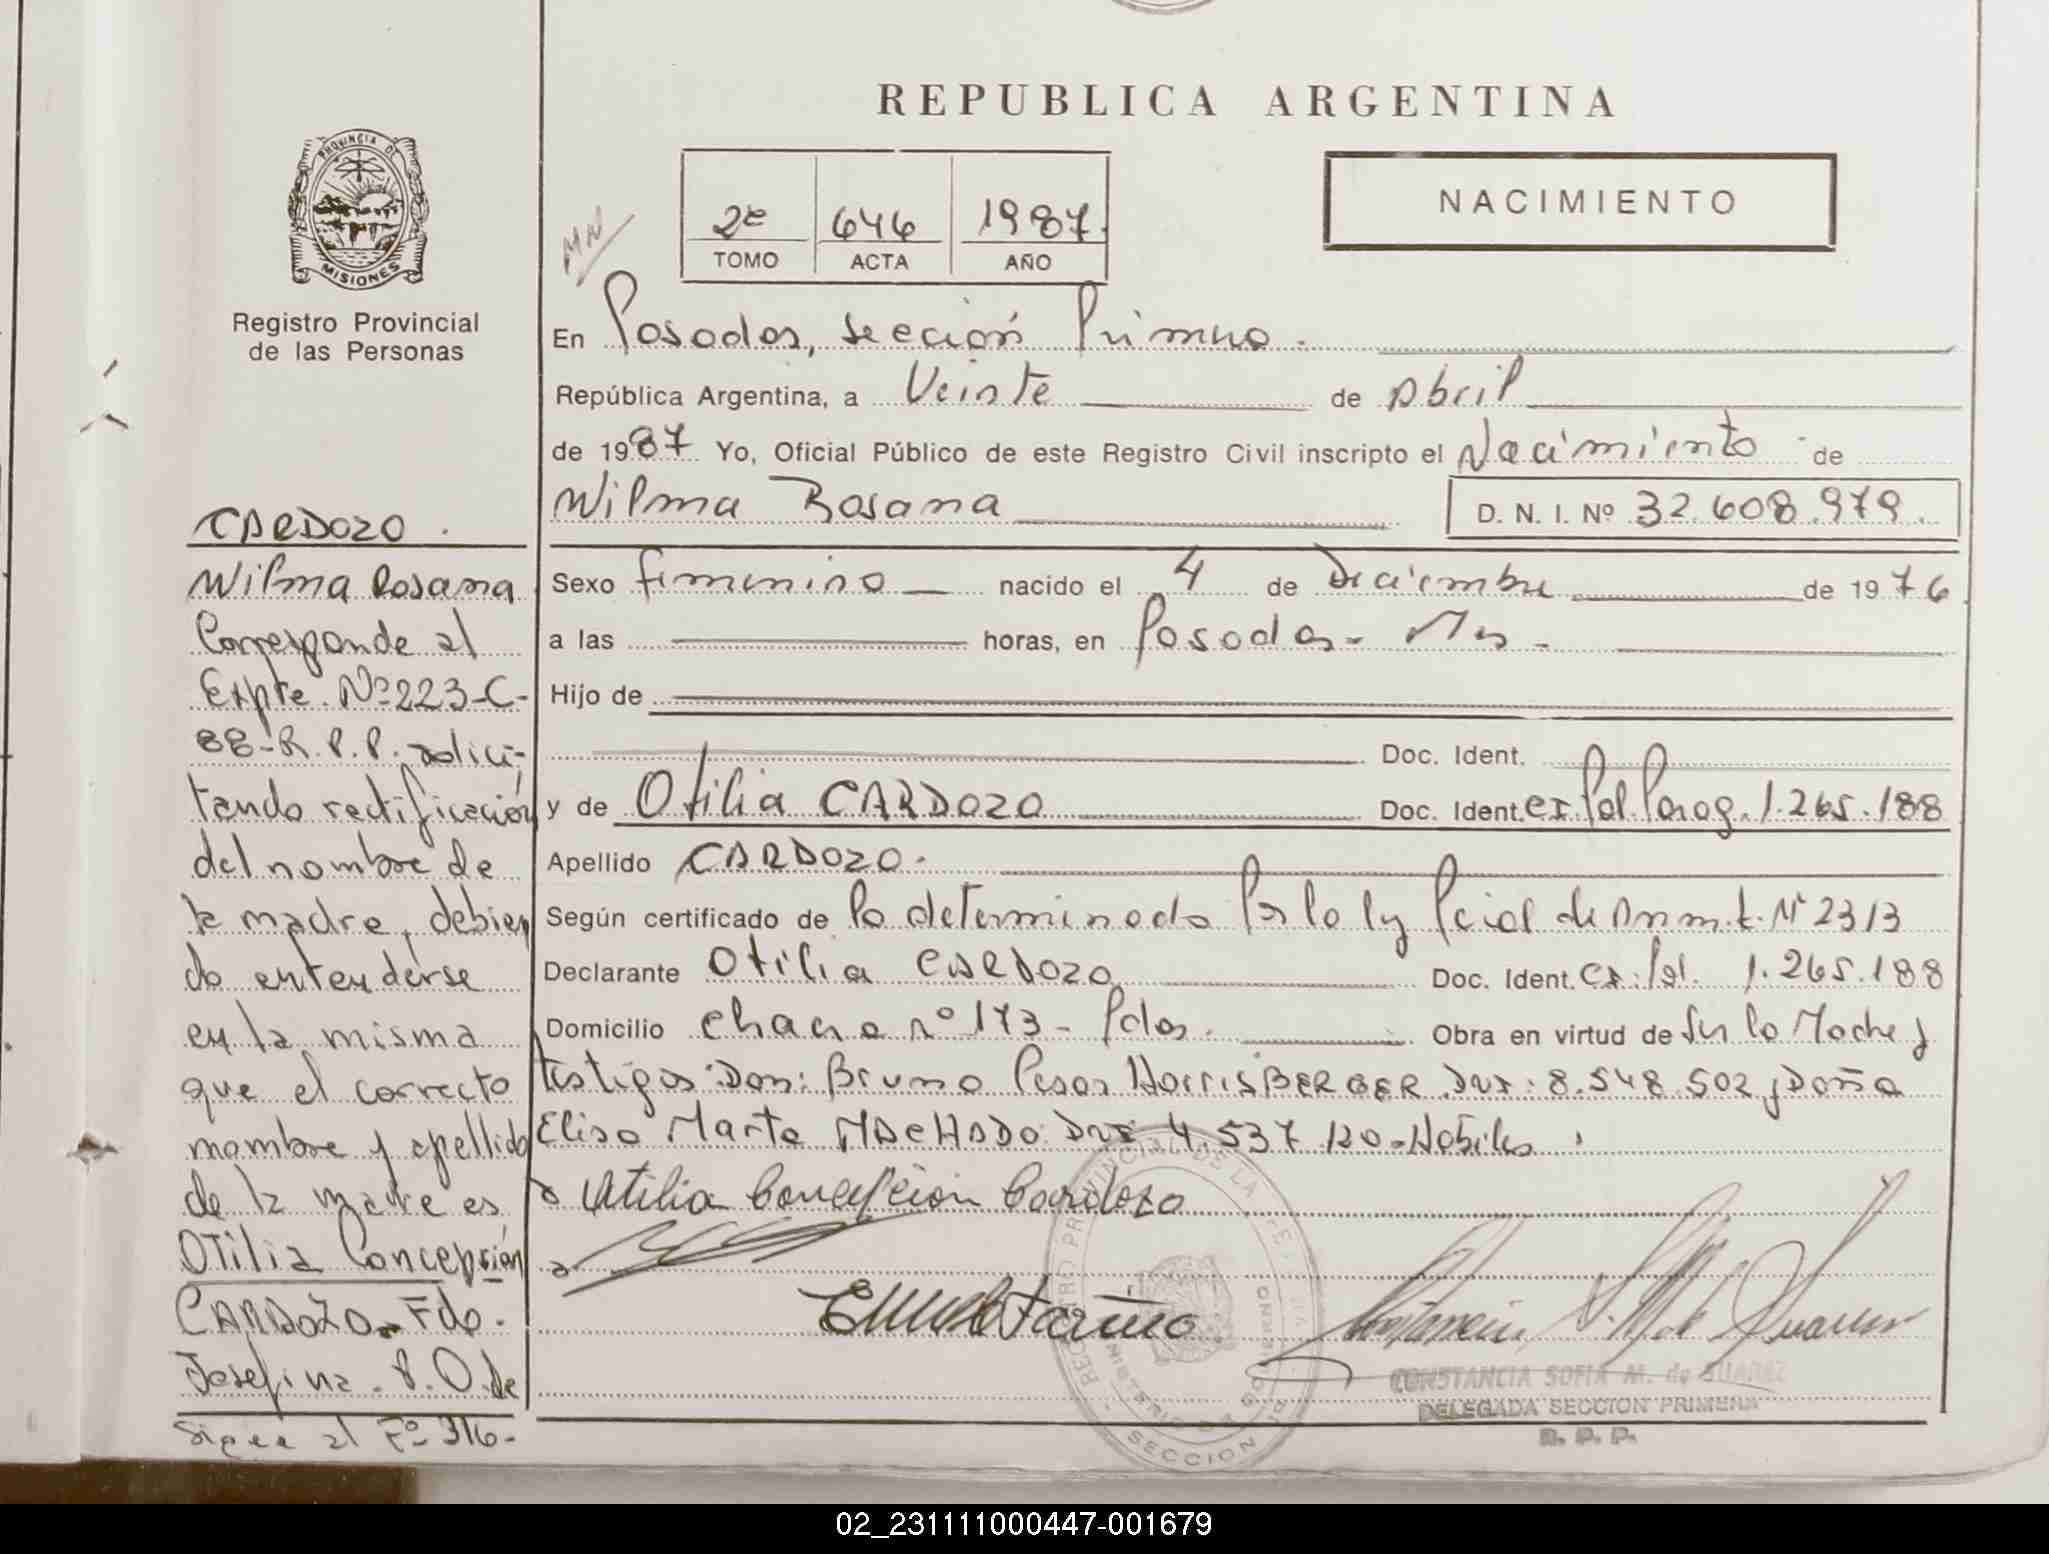 REPUBLICA ARGENTINA
PROVINCIA DE
MISIONES
Registro Provincial
de las Personas
2º 646 1987.
TOMO ACTA AÑO
NACIMIENTO
En Posadas, Sección Primera.
República Argentina, a Veinte de Abril
de 1987 Yo, Oficial Público de este Registro Civil inscripto el Nacimiento de
Wilma Rosana D. N. I. Nº 32.608.979.
Sexo femenino nacido el 4 de Diciembre de 1976
a las horas, en Posadas - Mnes -
Hijo de
Doc. Ident.
y de Otilia CARDOZO Doc. Ident. Ci. Pol. Parag. 1.265.188
Apellido CARDOZO.
Según certificado de lo determinado Por la Ley Pcial de Nº 2313
Declarante Otilia CARDOZO Doc. Ident. Ci. Pol. 1.265.188
Domicilio Chacra nº 173 - Pdas. Obra en virtud de Ser la Madre y
testigos Don: Bruno Cesar HORRISBERGER DNI: 8.548.502 y Doña
Elisa Marta MACHADO DNI 4.537.120 - Hábiles
Otilia Concepción Cardozo
CONSTANCIA SOFIA M. de SUAREZ
DELEGADA SECCION PRIMERA
R. P. P.
CARDOZO.
Wilma Rosana
Corresponde al
Expte. Nº 223-C-
88-R.P.P. solici-
tando rectificación
del nombre de
la madre, debien
do entenderse
en la misma
que el correcto
nombre y apellido
de la madre es
OTILIA Concepción
CARDOZO. Fdo.
Josefina. P. O. de
Sigue al Fº 316.
02_231111000447-001679